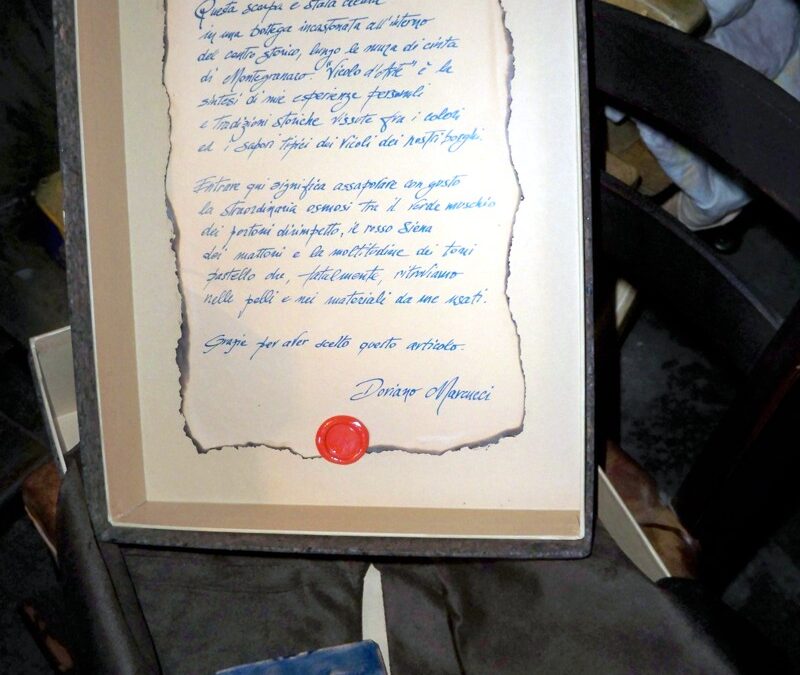 Questa scarpa è stata creata
in una bottega incastonata all'interno
del centro storico, lungo le mura di cinta
di Montegranaro. "Vicolo d'Arte" è la
sintesi di mie esperienze personali
e tradizioni storiche vissute fra i colori
ed i sapori tipici dei vicoli dei nostri borghi.
Entrare qui significa assaporare con gusto
la straordinaria osmosi tra il verde muschio
dei portoni dirimpetto, il rosso Siena
dei mattoni e la moltitudine dei toni
pastello che, fatalmente, ritroviamo
nelle pelli e nei materiali da me usati.
Grazie per aver scelto questo articolo.
Doriano Marcucci